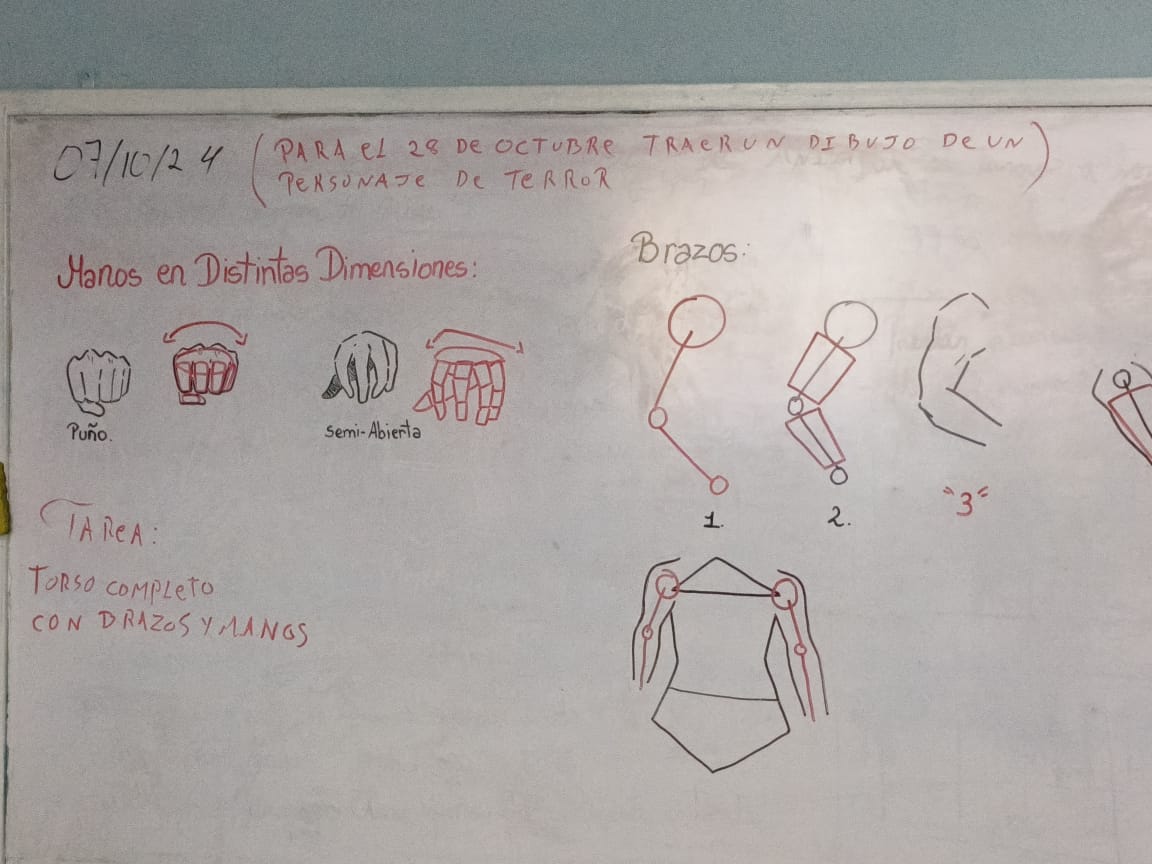 07/10/24 (PARA EL 28 DE OCTUBRE TRAER UN DIBUJO DE UN
PERSONAJE DE TERROR)
Manos en Distintas Dimensiones:
Brazos:
Puño.
Semi-Abierta
1.
2.
"3"
TAREA:
TORSO COMPLETO
CON BRAZOS Y MANOS